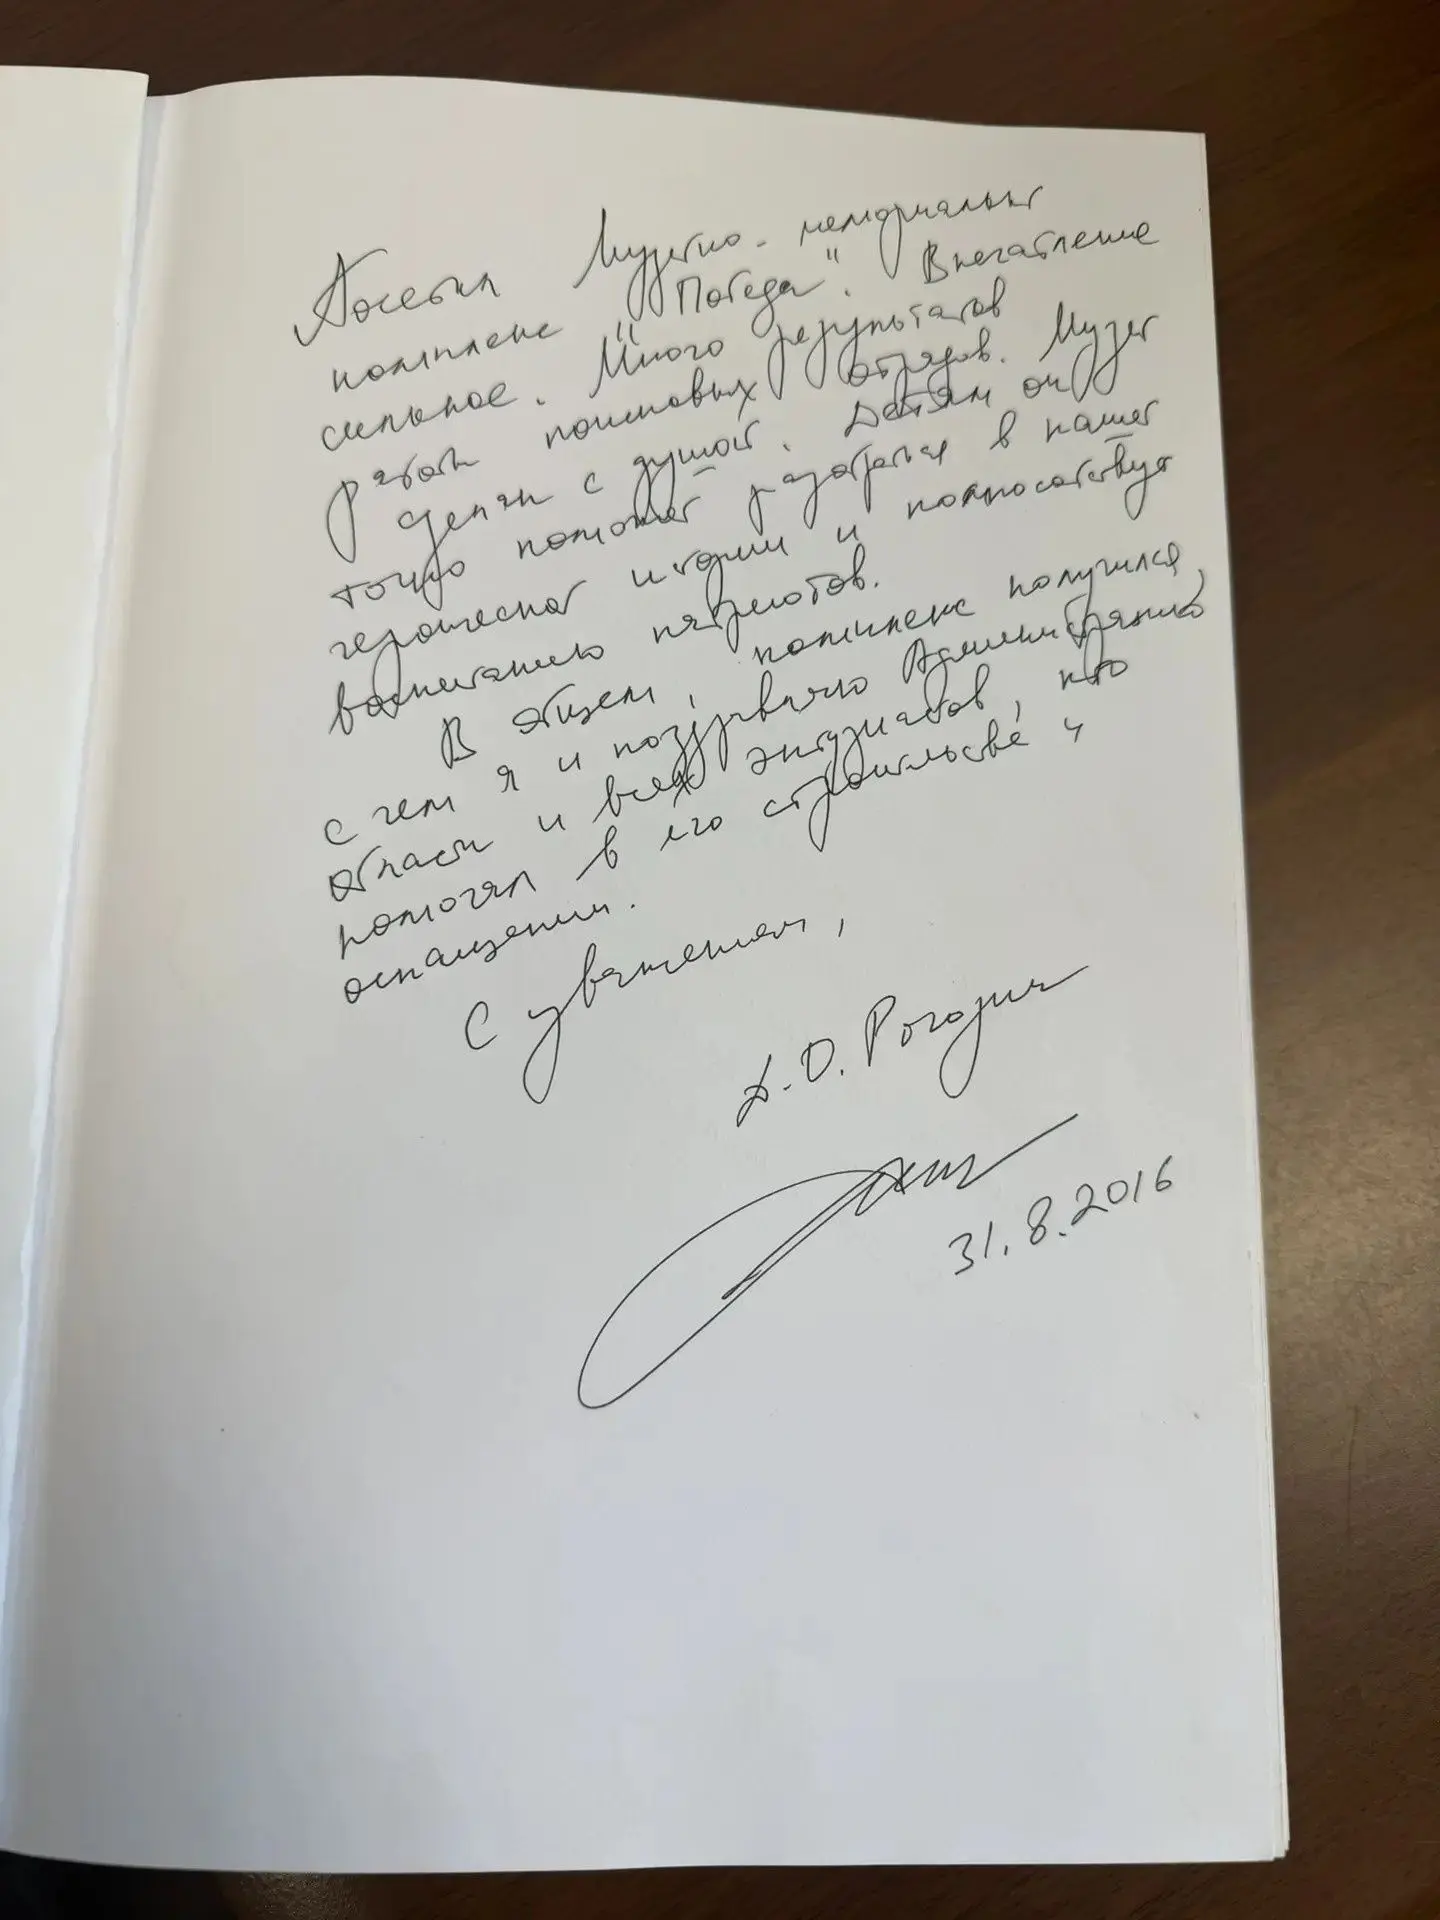 Посетил Музейно-мемориальный
комплекс "Победа". Впечатление
сильное. Много результатов
работы поисковых отрядов. Музей
сделан с душой. Детям он
точно поможет разобраться в нашей
героической истории и поспособствует
воспитанию патриотов.
В общем, комплекс получился,
с чем я и поздравляю Администрацию
области и всех энтузиастов, кто
помогал в его строительстве и
оснащении.
С уважением,
Д.О. Рогозин
31.8.2016